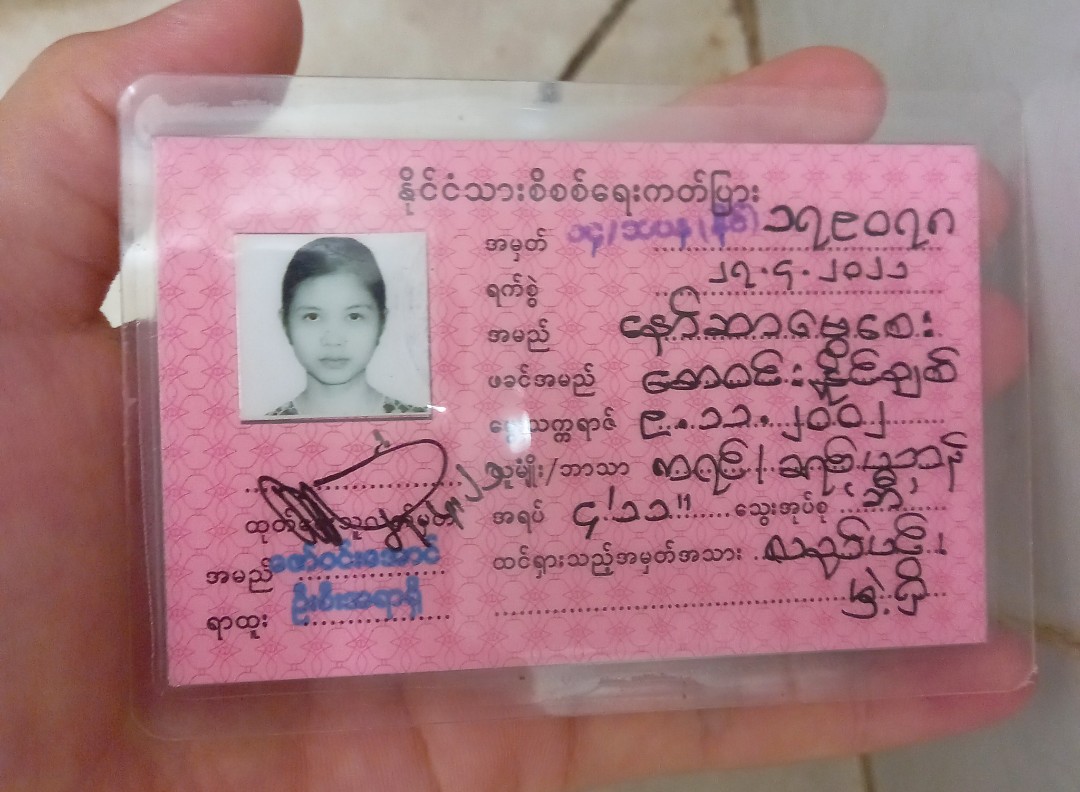 နိုင်ငံသားစိစစ်ရေးကတ်ပြား
အမှတ် ၁၄/ (နိုင်) ၁၇၉၀၇၈
ရက်စွဲ ၂၇.၄.၂၀၂၁
အမည် နော်ဆာမွေ့စေး
ဖခင်အမည် စောဝင်းနိုင်ချစ်
မွေးသက္ကရာဇ် ၉.၁၁.၂၀၀၂
လူမျိုး/ဘာသာ ကရင်/ခရစ်ယာန်
အရပ် ၄'၁၁" သွေးအုပ်စု ဘီ
ထင်ရှားသည့်အမှတ်အသား
မှဲ့ရှိ
ထုတ်ပေးသူလက်မှတ်
အမည် ဇော်ဝင်းအောင်
ရာထူး ဦးစီးအရာရှိ